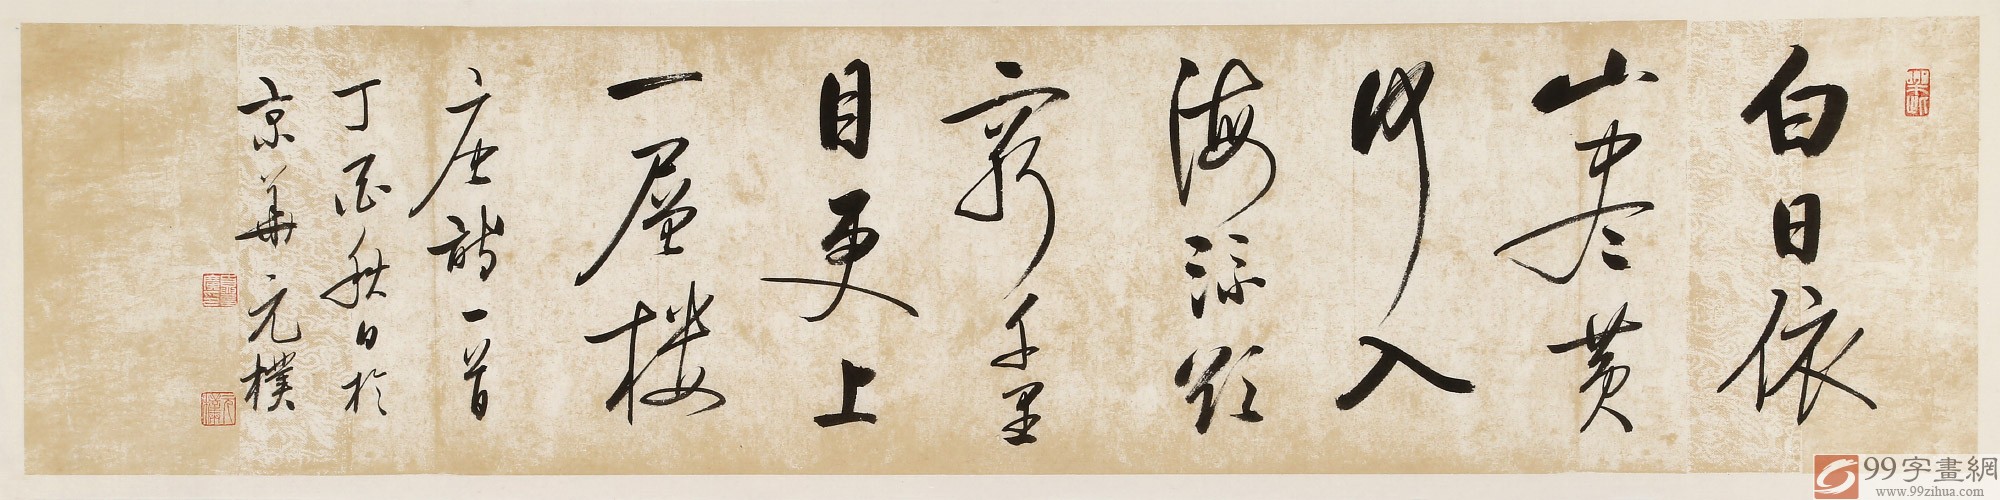 白日依
山盡黃
河入
海流欲
窮千里
目更上
一層樓
唐詩一首
丁酉秋日於
京華元樸
99字畫網
www.99zihua.com